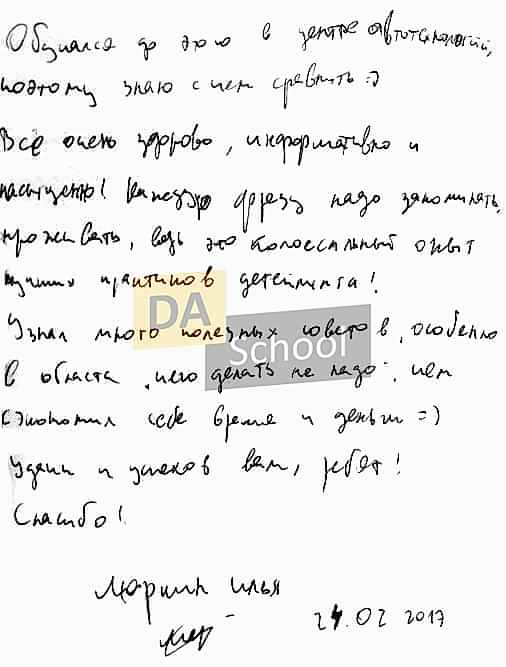 Обучался до этого в центре автотехнологий,
поэтому знаю с чем сравнить =)
Всё очень здорово, информативно и
насыщенно! Каждую фразу надо запоминать,
проживать, ведь это колоссальный опыт
лучших практиков детейлинга!
DA
School
Узнал много полезных советов, особенно
в области "чего делать не надо", чем
сэкономил себе время и деньги =)
Удачи и успехов вам, ребят!
Спасибо!
Илья
24.02 2017